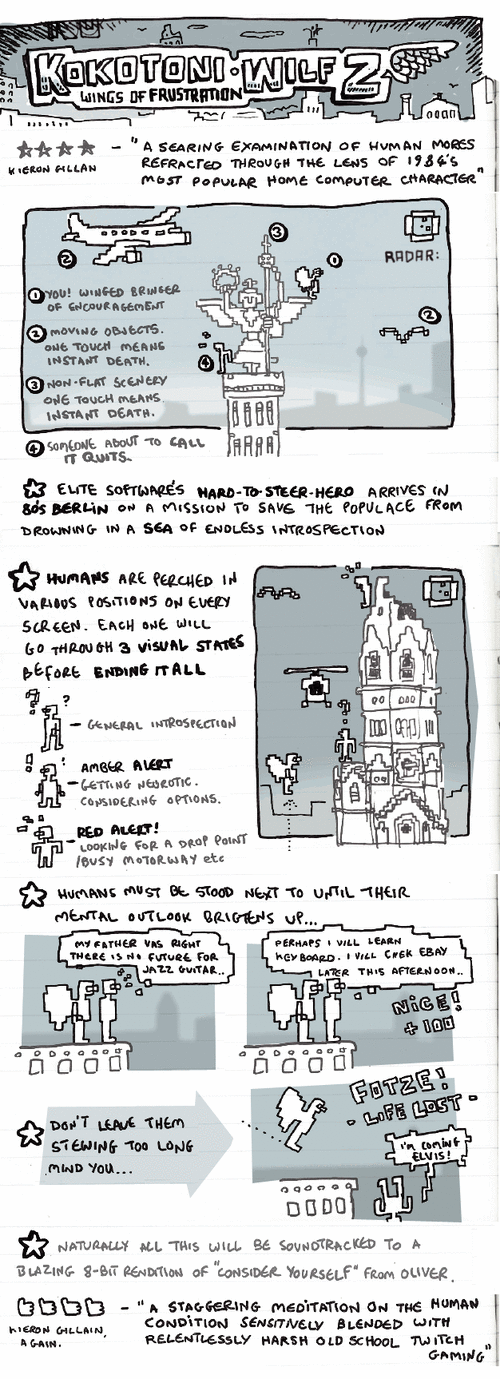 KOKOTONI·WILF 2
WINGS OF FRUSTRATION
KIERON GILLAN
- "A SEARING EXAMINATION OF HUMAN MORES
REFRACTED THROUGH THE LENS OF 1984'S
MOST POPULAR HOME COMPUTER CHARACTER"
RADAR:
2
3
1
2
4
1 YOU! WINGED BRINGER
OF ENCOURAGEMENT
2 MOVING OBJECTS.
ONE TOUCH MEANS
INSTANT DEATH.
3 NON-FLAT SCENERY
ONE TOUCH MEANS
INSTANT DEATH.
4 SOMEONE ABOUT TO CALL
IT QUITS.
ELITE SOFTWARE'S HARD-TO-STEER-HERO ARRIVES IN
80'S BERLIN ON A MISSION TO SAVE THE POPULACE FROM
DROWNING IN A SEA OF ENDLESS INTROSPECTION
HUMANS ARE PERCHED IN
VARIOUS POSITIONS ON EVERY
SCREEN. EACH ONE WILL
GO THROUGH 3 VISUAL STATES
BEFORE ENDING IT ALL
- GENERAL INTROSPECTION
AMBER ALERT
- GETTING NEUROTIC.
CONSIDERING OPTIONS.
RED ALERT!
- LOOKING FOR A DROP POINT
/BUSY MOTORWAY etc
HUMANS MUST BE STOOD NEXT TO UNTIL THEIR
MENTAL OUTLOOK BRIGTENS UP...
MY FATHER VAS RIGHT
THERE IS NO FUTURE FOR
JAZZ GUITAR..
PERHAPS I VILL LEARN
KEYBOARD. I VILL CHEK EBAY
LATER THIS AFTERNOON..
NICE!
+100
DON'T LEAVE THEM
STEWING TOO LONG
MIND YOU...
FOTZE!
- LIFE LOST -
I'M COMING
ELVIS!
NATURALLY ALL THIS WILL BE SOUNDTRACKED TO A
BLAZING 8-BIT RENDITION OF "CONSIDER YOURSELF" FROM OLIVER.
KIERON GILLAIN,
AGAIN.
- "A STAGGERING MEDITATION ON THE HUMAN
CONDITION SENSITIVELY BLENDED WITH
RELENTLESSLY HARSH OLD SCHOOL TWITCH
GAMING"